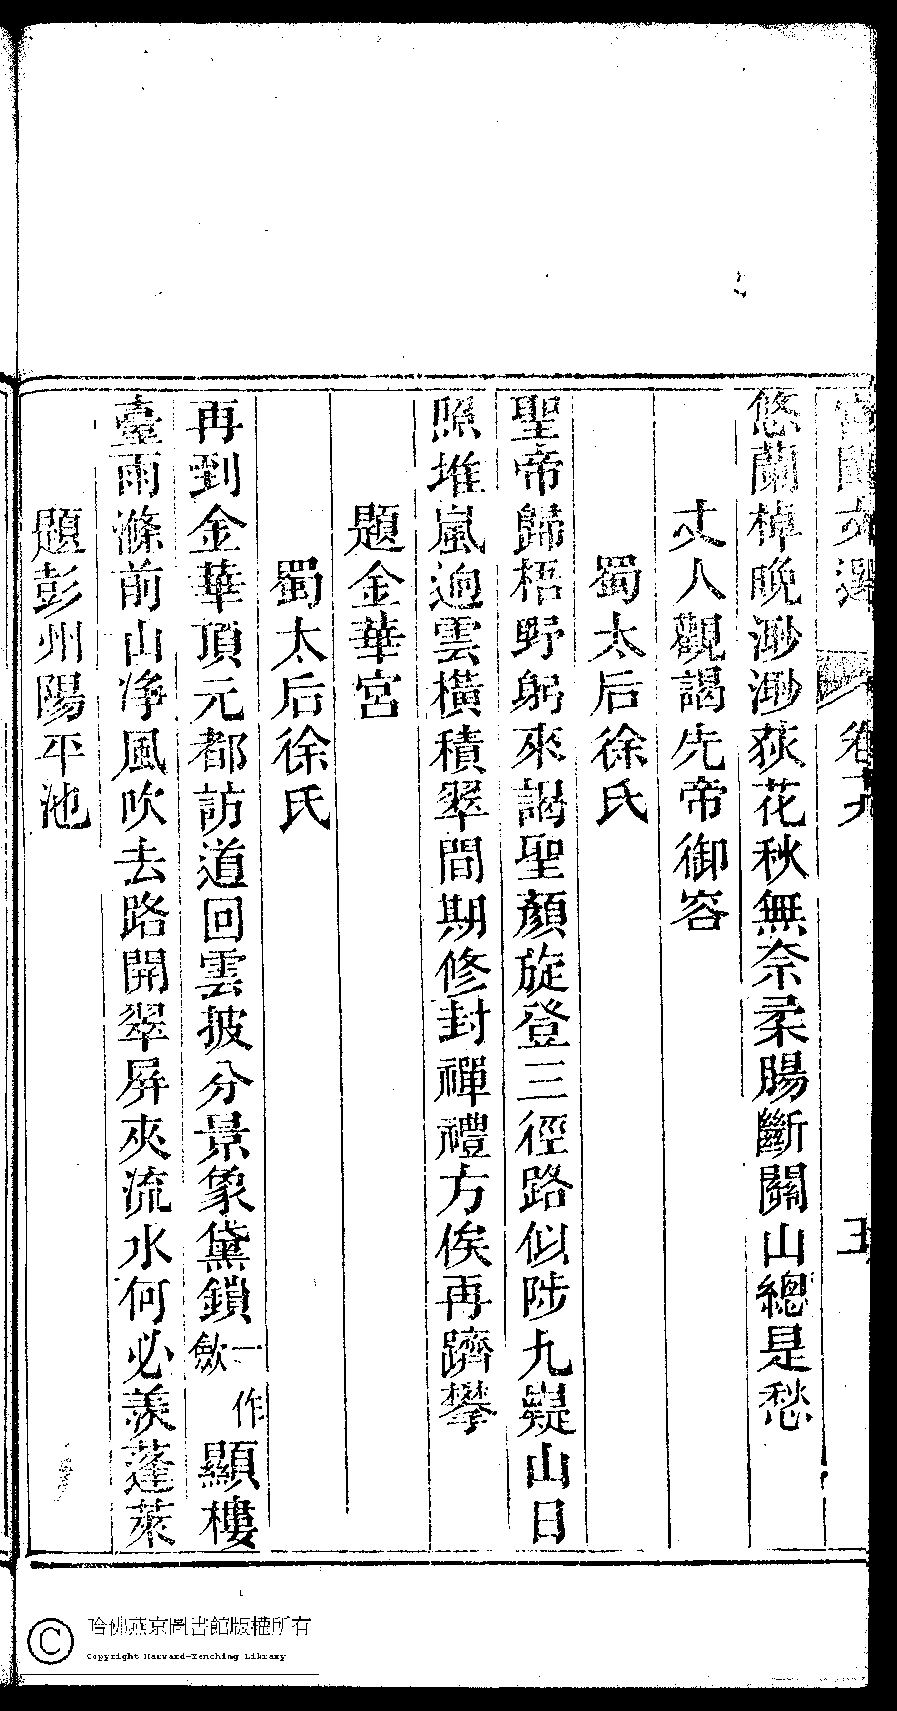 宮閨文選 卷十九 五
悠蘭棹晚渺渺荻花秋無奈柔腸斷關山總是愁
丈人觀謁先帝御容
蜀太后徐氏
聖帝歸梧野躬來謁聖顏旋登三徑路似陟九嶷山日
照堆嵐逈雲橫積翠間期修封禪禮方俟再躋攀
題金華宮
蜀太后徐氏
再到金華頂元都訪道回雲披分景象黛鎖一作歛顯樓
臺雨滌前山净風吹去路開翠屏夾流水何必羨蓬萊
題彭州陽平池
哈佛燕京圖書館版權所有
Copyright Harvard-Yenching Library